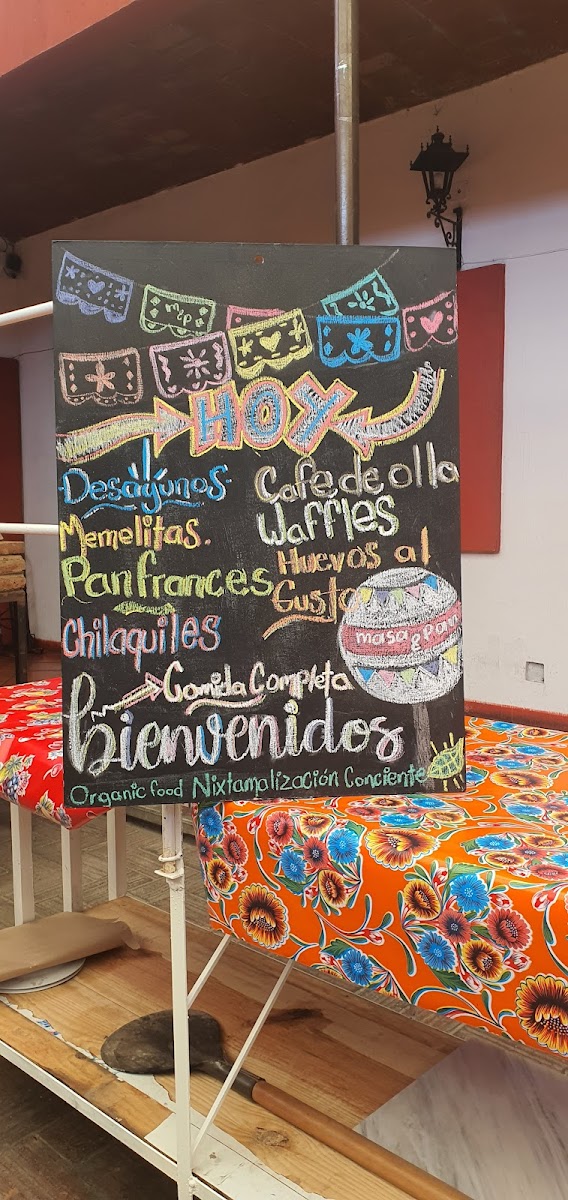 myp
HOY
Desayunos
Memelitas.
Panfrances
Chilaquiles
Cafe de olla
Waffles
Huevos al
Gusto
masa
& Pan
Comida Completa
bienvenidos
Organic food Nixtamalización Conciente